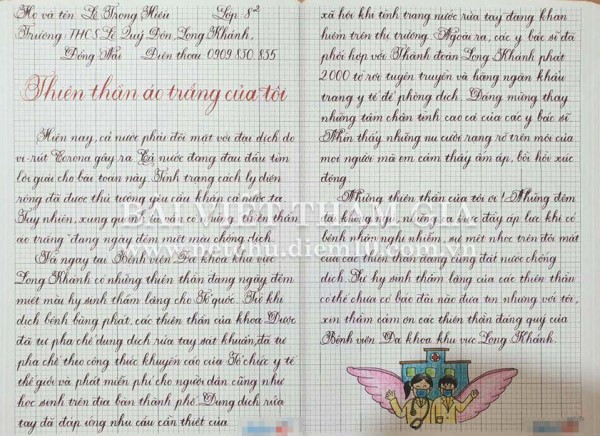 Họ và tên Lê Trọng Hiếu Lớp 8²
Trường THCS Lê Quý Đôn, Long Khánh,
Đồng Nai Điện thoại 0909 830 855
Thiên thần áo trắng của tôi
Hiện nay, cả nước phải đối mặt với đại dịch do
vi-rút Corona gây ra. Cả nước đang đau đầu tìm
lời giải cho bài toán này. Tình trạng cách ly diện
rộng đã được thủ tướng yêu cầu khắp cả nước ta.
Tuy nhiên, xung quanh ta vẫn có những "thiên thần
áo trắng" đang ngày đêm miệt mài chống dịch.
ngay tại Bệnh viện Đa khoa khu vực
Long Khánh có những thiên thần đang ngày đêm
miệt mài hy sinh thầm lặng cho Tổ quốc. Từ khi
dịch bệnh bùng phát, các thiên thần của khoa Dược
đã tự pha chế dung dịch rửa tay sát khuẩn, đã tự
pha chế theo công thức khuyến cáo của Tổ chức y tế
thế giới và phát miễn phí cho người dân cũng như
học sinh trên địa bàn thành phố. Dung dịch rửa
tay đã đáp ứng nhu cầu cần thiết của
xã hội khi tình trạng nước rửa tay đang khan
hiếm trên thị trường. Ngoài ra, các y bác sĩ đã
phối hợp với Thành đoàn Long Khánh phát
2000 tờ rơi tuyên truyền và hàng ngàn khẩu
trang y tế để phòng dịch. Đáng mừng thay
những tấm chân tình cao cả của các y bác sĩ.
Nhìn thấy những nụ cười rạng rỡ trên môi của
mọi người mà em cảm thấy ấm áp, bồi hồi xúc
động.
Những thiên thần của tôi ơi! Những đêm
ta không ngủ, những ca trực đầy áp lực khi có
bệnh nhân nghi nhiễm, sự mệt nhọc trên đôi mắt
của các thiên thần đang cùng đất nước chống
dịch. Sự hy sinh thầm lặng của các thiên thần
có thể chưa có báo đài nào đưa tin nhưng với tôi,
xin thầm cảm ơn các thiên thần đáng quý của
Bệnh viện Đa khoa khu vực Long Khánh.
BÀI VIẾT THAM GIA